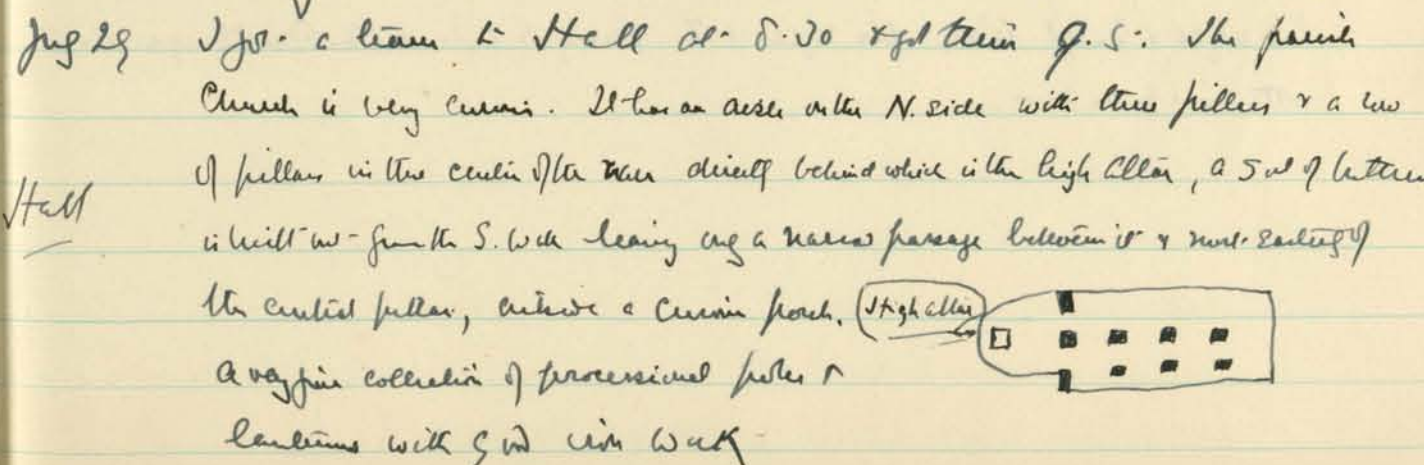 Aug 29 I got a train to Hall at 8.30 & got there 9.5. The parish
Church is very curious. It has an aisle on the N. side with three pillars & a row
of pillars in the centre of the nave directly behind which is the high altar, a sort of buttress
Hall
is built out from the S. wall leaving only a narrow passage between it & most easterly of
the central pillars, outside a curious porch. High altar
A very fine collection of processional poles &
lanterns with good iron work